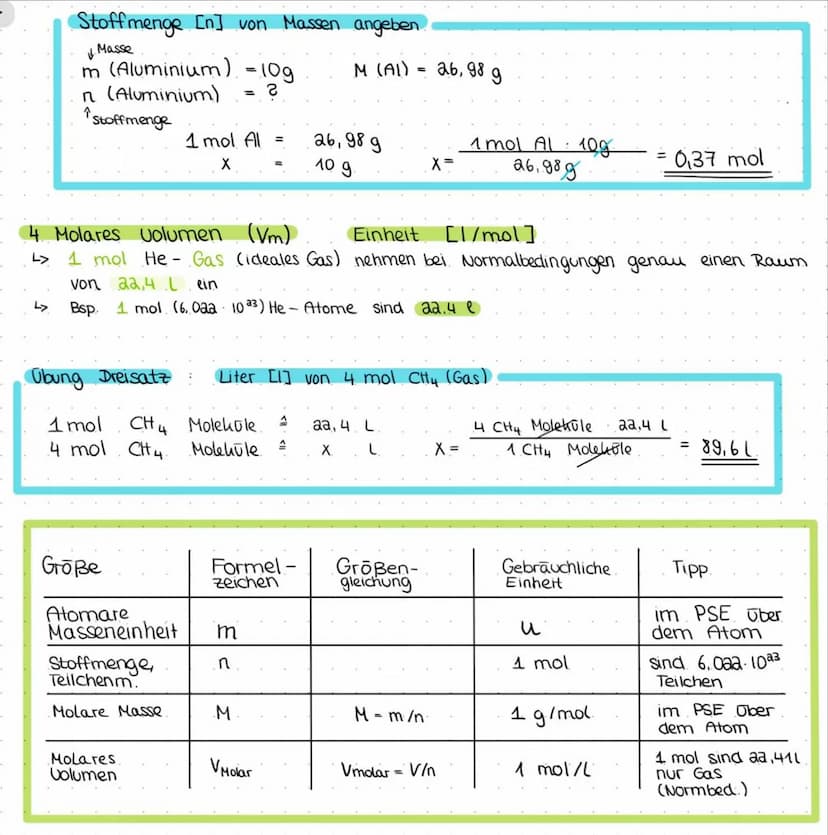 Stoffmenge [n] von Massen angeben
↓ Masse
m (Aluminium) = 10g M (Al) = 26,98 g
n (Aluminium) = ?
↑ Stoffmenge
1 mol Al = 26,98 g
x = 10 g
x = 1 mol Al · 10g / 26,98 g = 0,37 mol
4 Molares Volumen (Vm) Einheit [l/mol]
↳ 1 mol He - Gas (ideales Gas) nehmen bei Normalbedingungen genau einen Raum
von 22,4 l ein
↳ Bsp. 1 mol (6,022 · 10²³) He - Atome sind 22,4 l
Übung Dreisatz : Liter [l] von 4 mol CH₄ (Gas)
1 mol CH₄ Moleküle ≙ 22,4 L
4 mol CH₄ Moleküle ≙ x L
x = 4 CH₄ Moleküle · 22,4 L / 1 CH₄ Moleküle = 89,6 L
Größe Formel- Größen- Gebräuchliche Tipp
zeichen gleichung Einheit
Atomare im PSE über
Masseneinheit m u dem Atom
Stoffmenge, n 1 mol sind 6,022·10²³
Teilchenm. Teilchen
Molare Masse M M = m/n 1 g/mol im PSE über
dem Atom
Molares 1 mol sind 22,41l
Volumen V Molar Vmolar = V/n 1 mol/L nur Gas
(Normbed.)